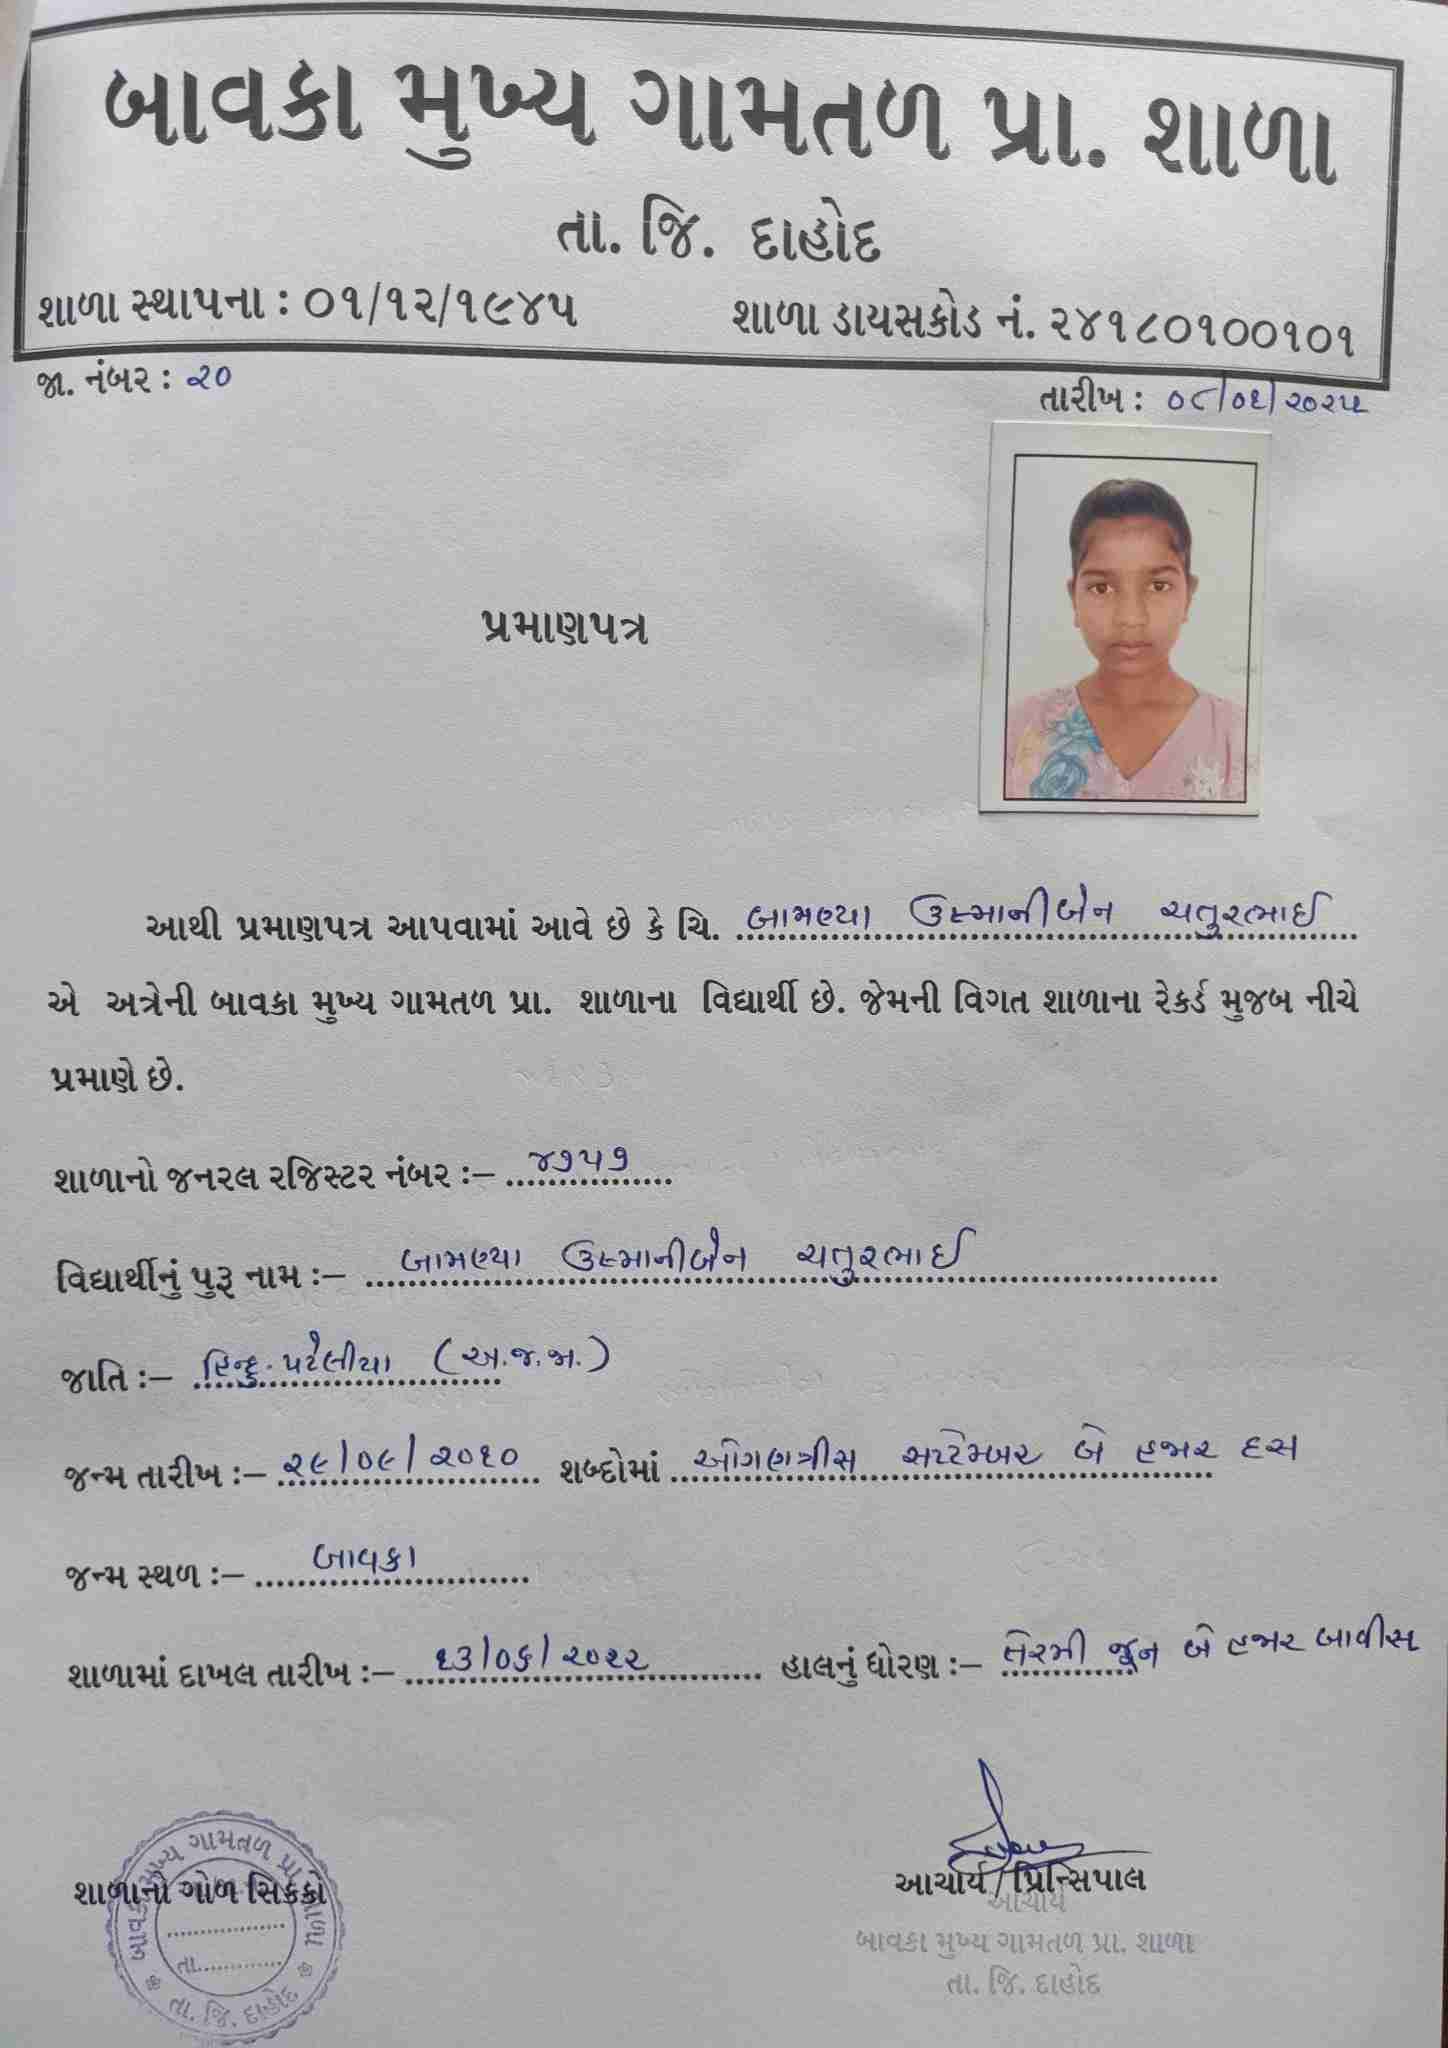 બાવકા મુખ્ય ગામતળ પ્રા. શાળા
તા. જિ. દાહોદ
શાળા સ્થાપના : ૦૧/૧૨/૧૯૪૫ શાળા ડાયસકોડ નં. ૨૪૧૮૦૧૦૦૧૦૧
જા. નંબર : ૨૦
તારીખ : ૦૮/૦૧/૨૦૨૫
પ્રમાણપત્ર
આથી પ્રમાણપત્ર આપવામાં આવે છે કે ચિ. બામણ્યા ઉસ્માનીબેન ચતુરભાઈ
એ અત્રેની બાવકા મુખ્ય ગામતળ પ્રા. શાળાના વિદ્યાર્થી છે. જેમની વિગત શાળાના રેકર્ડ મુજબ નીચે
પ્રમાણે છે.
શાળાનો જનરલ રજિસ્ટર નંબર :– ૪૭૫૭
વિદ્યાર્થીનું પુરૂ નામ :– બામણ્યા ઉસ્માનીબેન ચતુરભાઈ
જાતિ :– હિન્દુ. પટેલીયા (અ.જ.જા.)
જન્મ તારીખ :– ૨૯/૦૯/૨૦૧૦ શબ્દોમાં ઓગણત્રીસ સપ્ટેમ્બર બે હજાર દસ
જન્મ સ્થળ :– બાવકા
શાળામાં દાખલ તારીખ :– ૧૩/૦૬/૨૦૨૨ હાલનું ધોરણ :– તેરમી જૂન બે હજાર બાવીસ
શાળાનો ગોળ સિક્કો
બાવકા મુખ્ય ગામતળ પ્રા. શાળા
તા.
તા. જિ. દાહોદ
આચાર્ય / પ્રિન્સિપાલ
આચાર્ય
બાવકા મુખ્ય ગામતળ પ્રા. શાળા
તા. જિ. દાહોદ